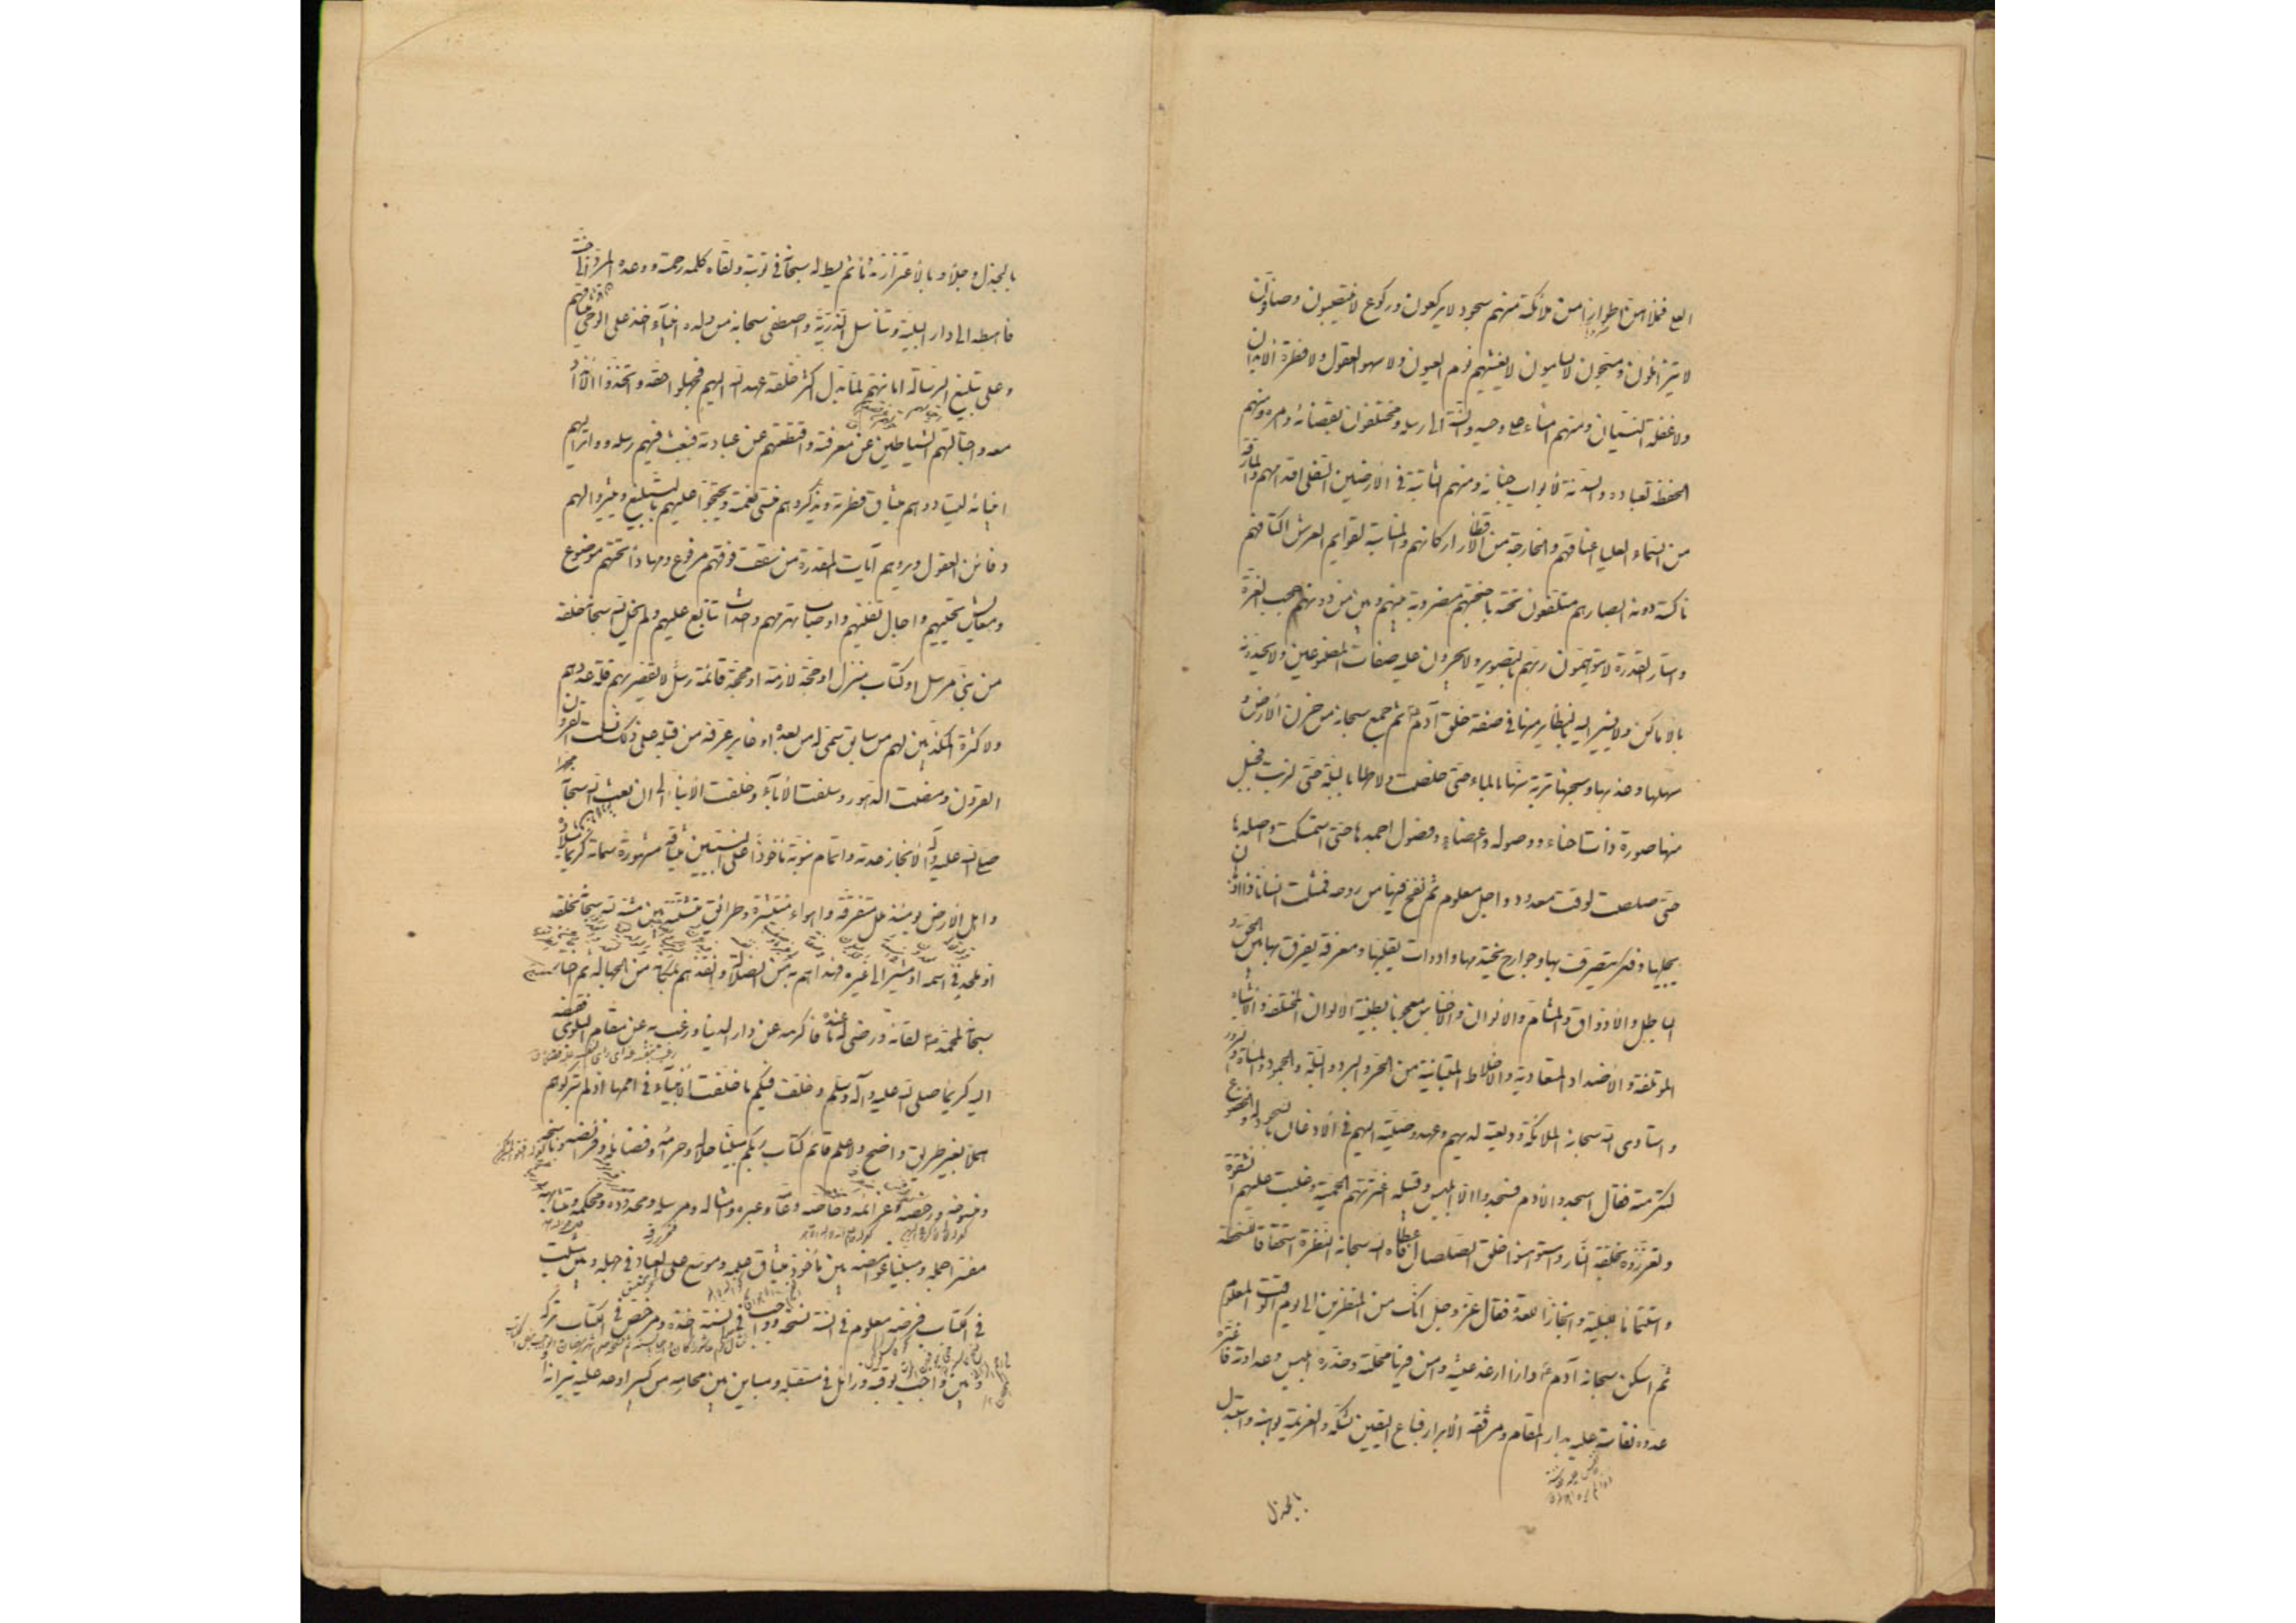 العلى فملأهن اطوارا من ملائكة منهم سجود لا يركعون وركوع لا ينتصبون وصافون
لا يتزايلون ومسبحون لا يسامون لا يغشيهم نوم العيون ولا سهو العقول ولا فترة الابدان
ولا غفلة النسيان ومنهم امناء على وحيه والسنة الى رسله ومختلفون بقضائه وامره ومنهم
الحفظة لعباده والسدنة لابواب جنانه ومنهم الثابتة في الارضين السفلى اقدامهم والمارقة
من السماء العليا اعناقهم والخارجة من الاقطار اركانهم والمناسبة لقوايم العرش اكتافهم
ناكسة دونه ابصارهم متلفعون تحته باجنحتهم مضروبة بينهم وبين من دونهم حجب العزة
واستار القدرة لا يتوهمون ربهم بالتصوير ولا يجرون عليه صفات المصنوعين ولا يحدونه
بالاماكن ولا يشيرون اليه بالنظاير منها في صفة خلق آدم ع ثم جمع سبحانه من حزن الارض و
سهلها وعذبها وسبخها تربة سنها بالماء حتى خلصت ولاطها بالبلة حتى لزبت فجبل
منها صورة ذات احناء ووصول واعضاء وفصول اجمدها حتى استمسكت واصلدها
حتى صلصلت لوقت معدود واجل معلوم ثم نفخ فيها من روحه فمثلت انسانا ذا اذهان
يجيلها وفكر يتصرف بها وجوارح يختدمها وادوات يقلبها ومعرفة يفرق بها بين الحق و
الباطل والاذواق والمشام والالوان والاجناس معجونا بطينة الالوان المختلفة والاشباه
المؤتلفة والاضداد المتعادية والاخلاط المتباينة من الحر والبرد والبلة والجمود والمساءة والسرور
واستادى الله سبحانه الملائكة وديعته لديهم وعهد وصيته اليهم في الاذعان بالسجود له والخضوع
لتكرمته فقال اسجدوا لآدم فسجدوا الا ابليس وقبيله اعترتهم الحمية وغلبت عليهم الشقوة
وتعززوا بخلقة النار واستوهنوا خلق الصلصال فاعطاه الله سبحانه النظرة استحقاقا للسخطة
واستتماما للبلية وانجازا للعدة فقال عز وجل انك من المنظرين الى يوم الوقت المعلوم
ثم اسكن سبحانه آدم ع دارا ارغد فيها عيشه وامن فيها محلته وحذره ابليس وعداوته فاغتره
عدوه نفاسة عليه بدار المقام ومرافقة الابرار فباع اليقين بشكه والعزيمة بوهنه واستبدل
بالجذل
بالجذل وجلا وبالاغترار ندما ثم بسط الله سبحانه في توبته ولقاه كلمة رحمته ووعده المرد الى جنته
فاهبطه الى دار البلية وتناسل الذرية واصطفى سبحانه من ولده انبياء اخذ على الوحي ميثاقهم
وعلى تبليغ الرسالة امانتهم لما بدل اكثر خلقه عهد الله اليهم فجهلوا حقه واتخذوا الانداد
معه واجتالتهم الشياطين عن معرفته واقتطعتهم عن عبادته فبعث فيهم رسله وواتر اليهم
انبيائه ليستادوهم ميثاق فطرته ويذكروهم منسى نعمته ويحتجوا عليهم بالتبليغ ويثيروا لهم
دفائن العقول ويروهم آيات المقدرة من سقف فوقهم مرفوع ومهاد تحتهم موضوع
ومعايش تحييهم واجال تفنيهم واوصاب تهرمهم واحداث تتابع عليهم ولم يخل الله سبحانه خلقه
من نبي مرسل او كتاب منزل او حجة لازمة او محجة قائمة رسل لا تقصر بهم قلة عددهم
ولا كثرة المكذبين لهم من سابق سمى له من بعده او غابر عرفه من قبله على ذلك نسلت القرون
القرون ومضت الدهور وسلفت الاباء وخلفت الابناء الى ان بعث الله سبحانه محمدا
صلى الله عليه وآله لانجاز عدته واتمام نبوته ماخوذا على النبيين ميثاقه مشهورة سماته كريما ميلاده
واهل الارض يومئذ ملل متفرقة واهواء منتشرة وطرائق متشتتة بين مشبه لله سبحانه بخلقه
او ملحد في اسمه او مشير الى غيره فهداهم به من الضلالة وانقذهم بمكانه من الجهالة ثم اختار
سبحانه لمحمد ص لقائه ورضى له ما عنده فاكرمه عن دار الدنيا ورغب به عن مقام البلوى فقبضه
اليه كريما صلى الله عليه وآله وسلم وخلف فيكم ما خلفت الانبياء في اممها اذ لم يتركوهم
هملا بغير طريق واضح ولا علم قائم كتاب ربكم مبينا حلاله وحرامه وفضائله وفرائضه وناسخه
ومنسوخه ورخصه وعزائمه وخاصه وعامه وعبره وامثاله ومرسله ومحدوده ومحكمه ومتشابهه
مفسرا جمله ومبينا غوامضه بين ماخوذ ميثاق علمه وموسع على العباد في جهله وبين مثبت
في الكتاب فرضه معلوم في السنة نسخه وواجب في السنة اخذه ومرخص في الكتاب تركه
وبين واجب لوقته وزائل في مستقبله ومباين بين محارمه من كبير اوعد عليه نيرانه او